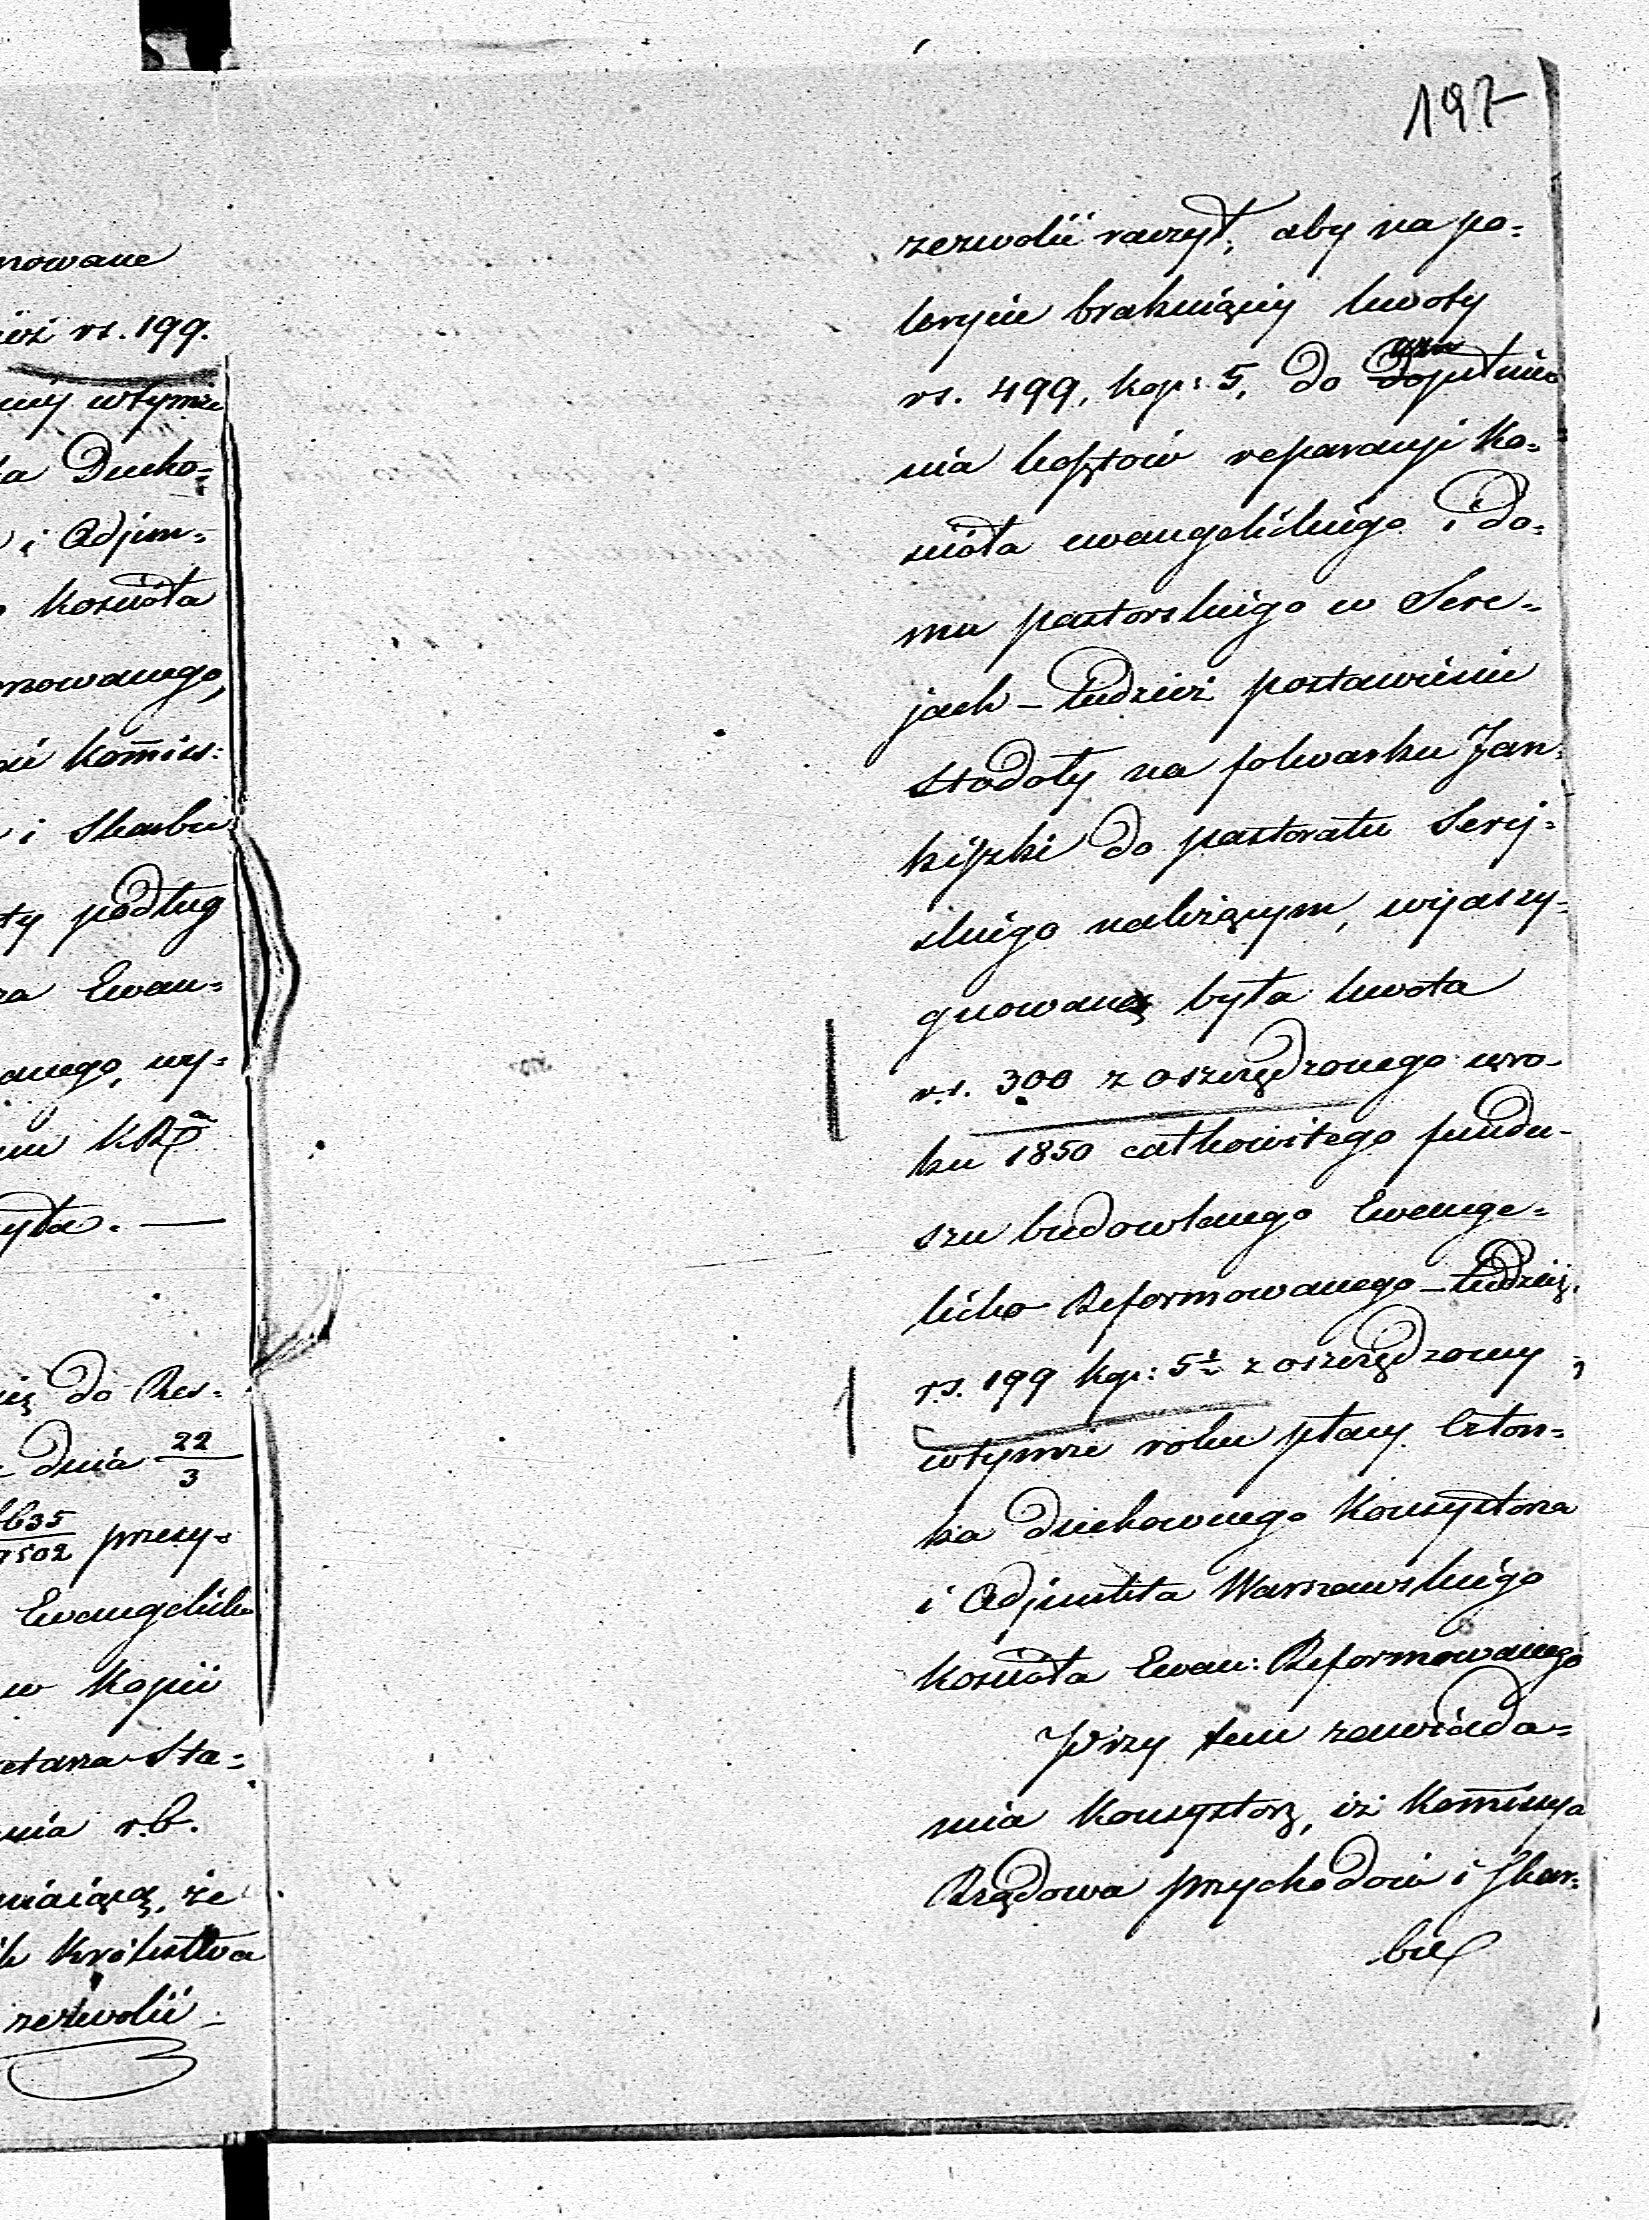 nowane
rs. 199.
wtymże
Ducho=
i Adjun=
kościoła
mowanego,
Kommiss:
i Skarbu
podług
Ewan=
wy=
yła. —
do Res=
dnia 22/3
przesy=
Ewangelicko
w Kopii
Sta=
nia r.b.
że
Królestwa
zezwolić
197
zezwolić raczył, aby na po=
krycie brakującej kwoty
rs. 499, kop: 5, do dopełnie uzu
nia kosztów reparacyi Ko=
ścioła ewangelickiego i do=
mu pastorskiego w Sere=
jach – tudzież postawienie
stodoły na folwarku Jan=
kiszki do pastoratu Serej=
skiego należącym, wyassy=
gnowaną była kwota
rs. 300 z oszczędzonego w ro-
ku 1850 całkowitego fundu-
szu budowlanego Ewange=
licko Reformowanego – tudzież
rs. 199 kop: 5½ z oszczędzonej
wtymże roku płacy Człon=
ka duchownego Konsystorza
i Adjunkta Warszawskiego
kościoła Ewan: Reformowanego
Przy tem zawiada=
mia Konsystorz, iż Kommissya
Rządowa Przychodów i Skar=
bu